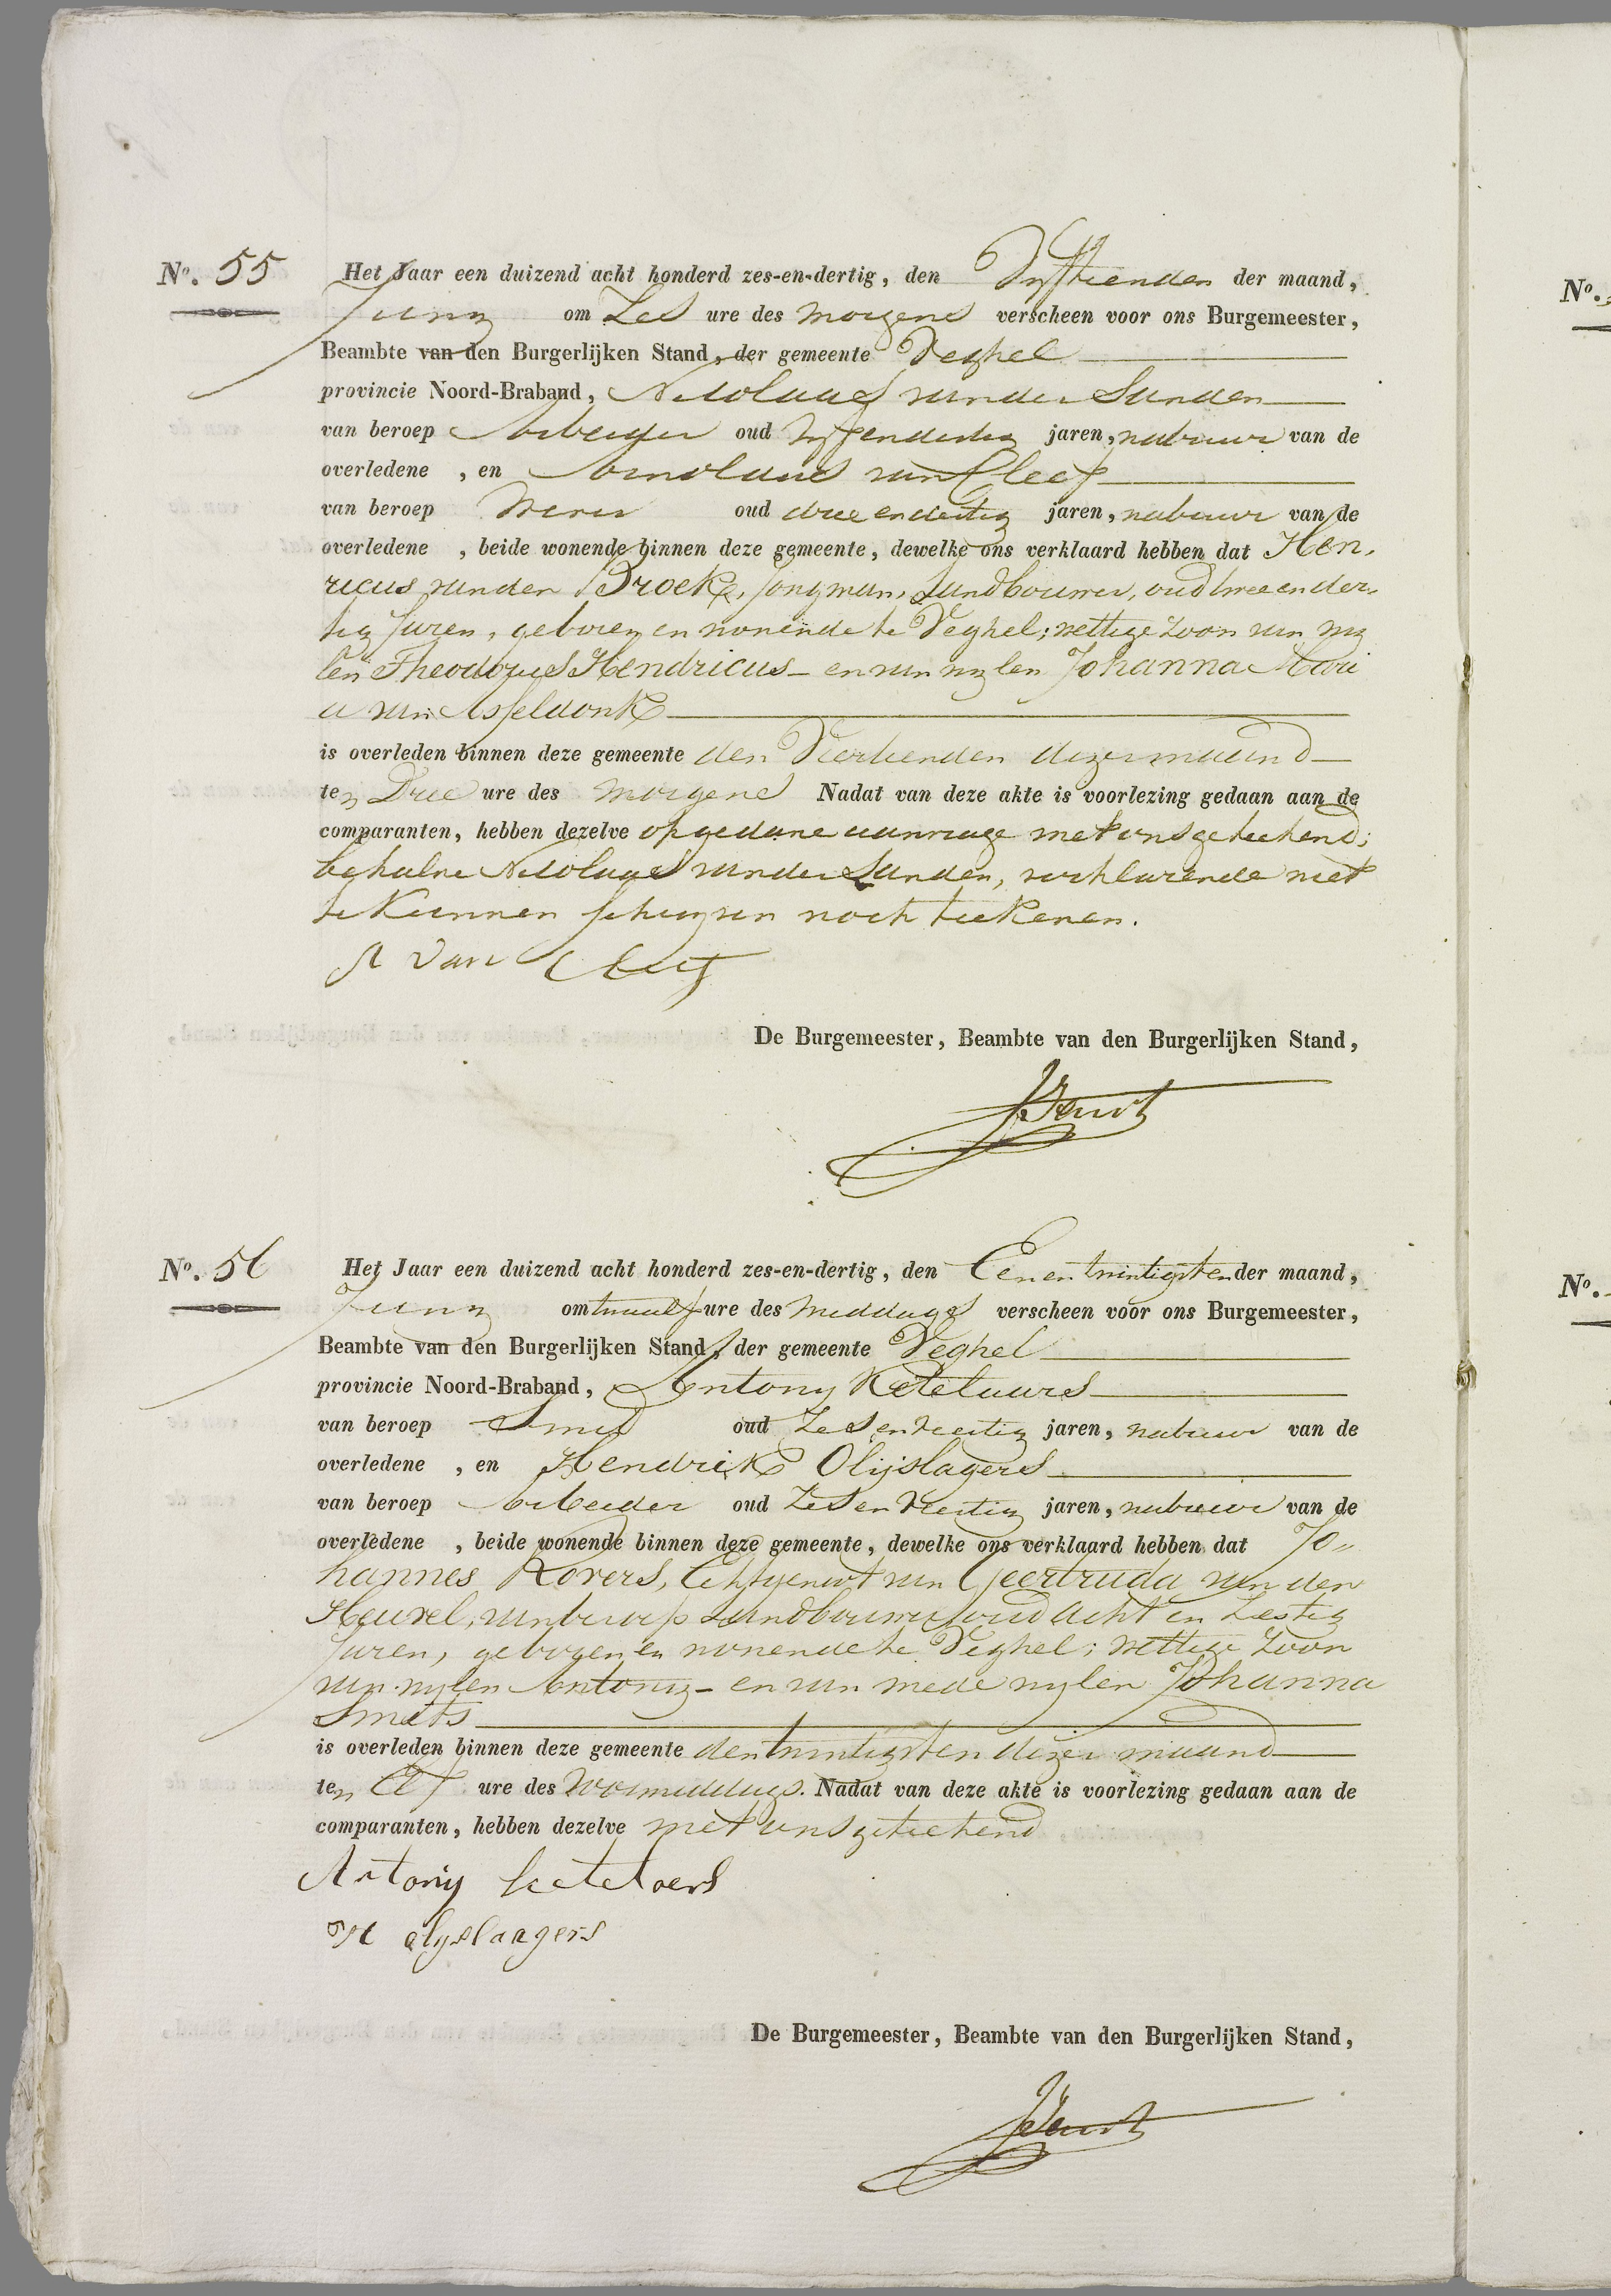 No. 55 Het Jaar een duizend acht honderd zes-en-dertig, den Vyftienden der maand,
Juny om Zes ure des morgens verscheen voor ons Burgemeester,
Beambte van den Burgerlijken Stand, der gemeente Veghel
provincie Noord-Braband, Nicolaas vander Sanden
van beroep Arbeider oud vyfendertig jaren, nabuur van de
overledene , en Arnoldus van Cleef
van beroep Wever oud drieendertig jaren, nabuur van de
overledene , beide wonende binnen deze gemeente, dewelke ons verklaard hebben dat Hen-
ricus vanden Broek, jongman, Landbouwer, oud tweeender-
tig Jaren, geboren en wonende te Veghel; wettige zoon van wy
len Theodorus Hendricus - en van wylen Johanna Mari
a van Asseldonk
is overleden binnen deze gemeente den Veertienden dezer maand
ten Drie ure des morgens Nadat van deze akte is voorlezing gedaan aan de
comparanten, hebben dezelve op gedane aanvrage met ons geteekend;
behalve Nicolaas vander Sanden, verklarende niet
te kunnen schryven noch teekenen.
A van Cleef
De Burgemeester, Beambte van den Burgerlijken Stand,
No. 56 Het Jaar een duizend acht honderd zes-en-dertig, den Eenentwintigsten der maand,
Juny om twaalf ure des middags verscheen voor ons Burgemeester,
Beambte van den Burgerlijken Stand, der gemeente Veghel
provincie Noord-Braband, Antony Ketelaars
van beroep Smid oud Zesenveertig jaren, nabuur van de
overledene , en Hendrik Olijslagers
van beroep Arbeider oud Zesenveertig jaren, nabuur van de
overledene , beide wonende binnen deze gemeente, dewelke ons verklaard hebben dat Jo-
hannes Rovers, Echtgenoot van Geertruda van den
Heuvel, van beroep Landbouwer, oud acht en Zestig
Jaren, geboren en wonende te Veghel; wettige zoon
van wylen Antony - en van mede wylen Johanna
Smits
is overleden binnen deze gemeente den twintigsten dezer maand
ten Elf ure des voormiddags. Nadat van deze akte is voorlezing gedaan aan de
comparanten, hebben dezelve met ons geteekend
Antony ketelaers
H olyslaagers
De Burgemeester, Beambte van den Burgerlijken Stand,
No.
No.